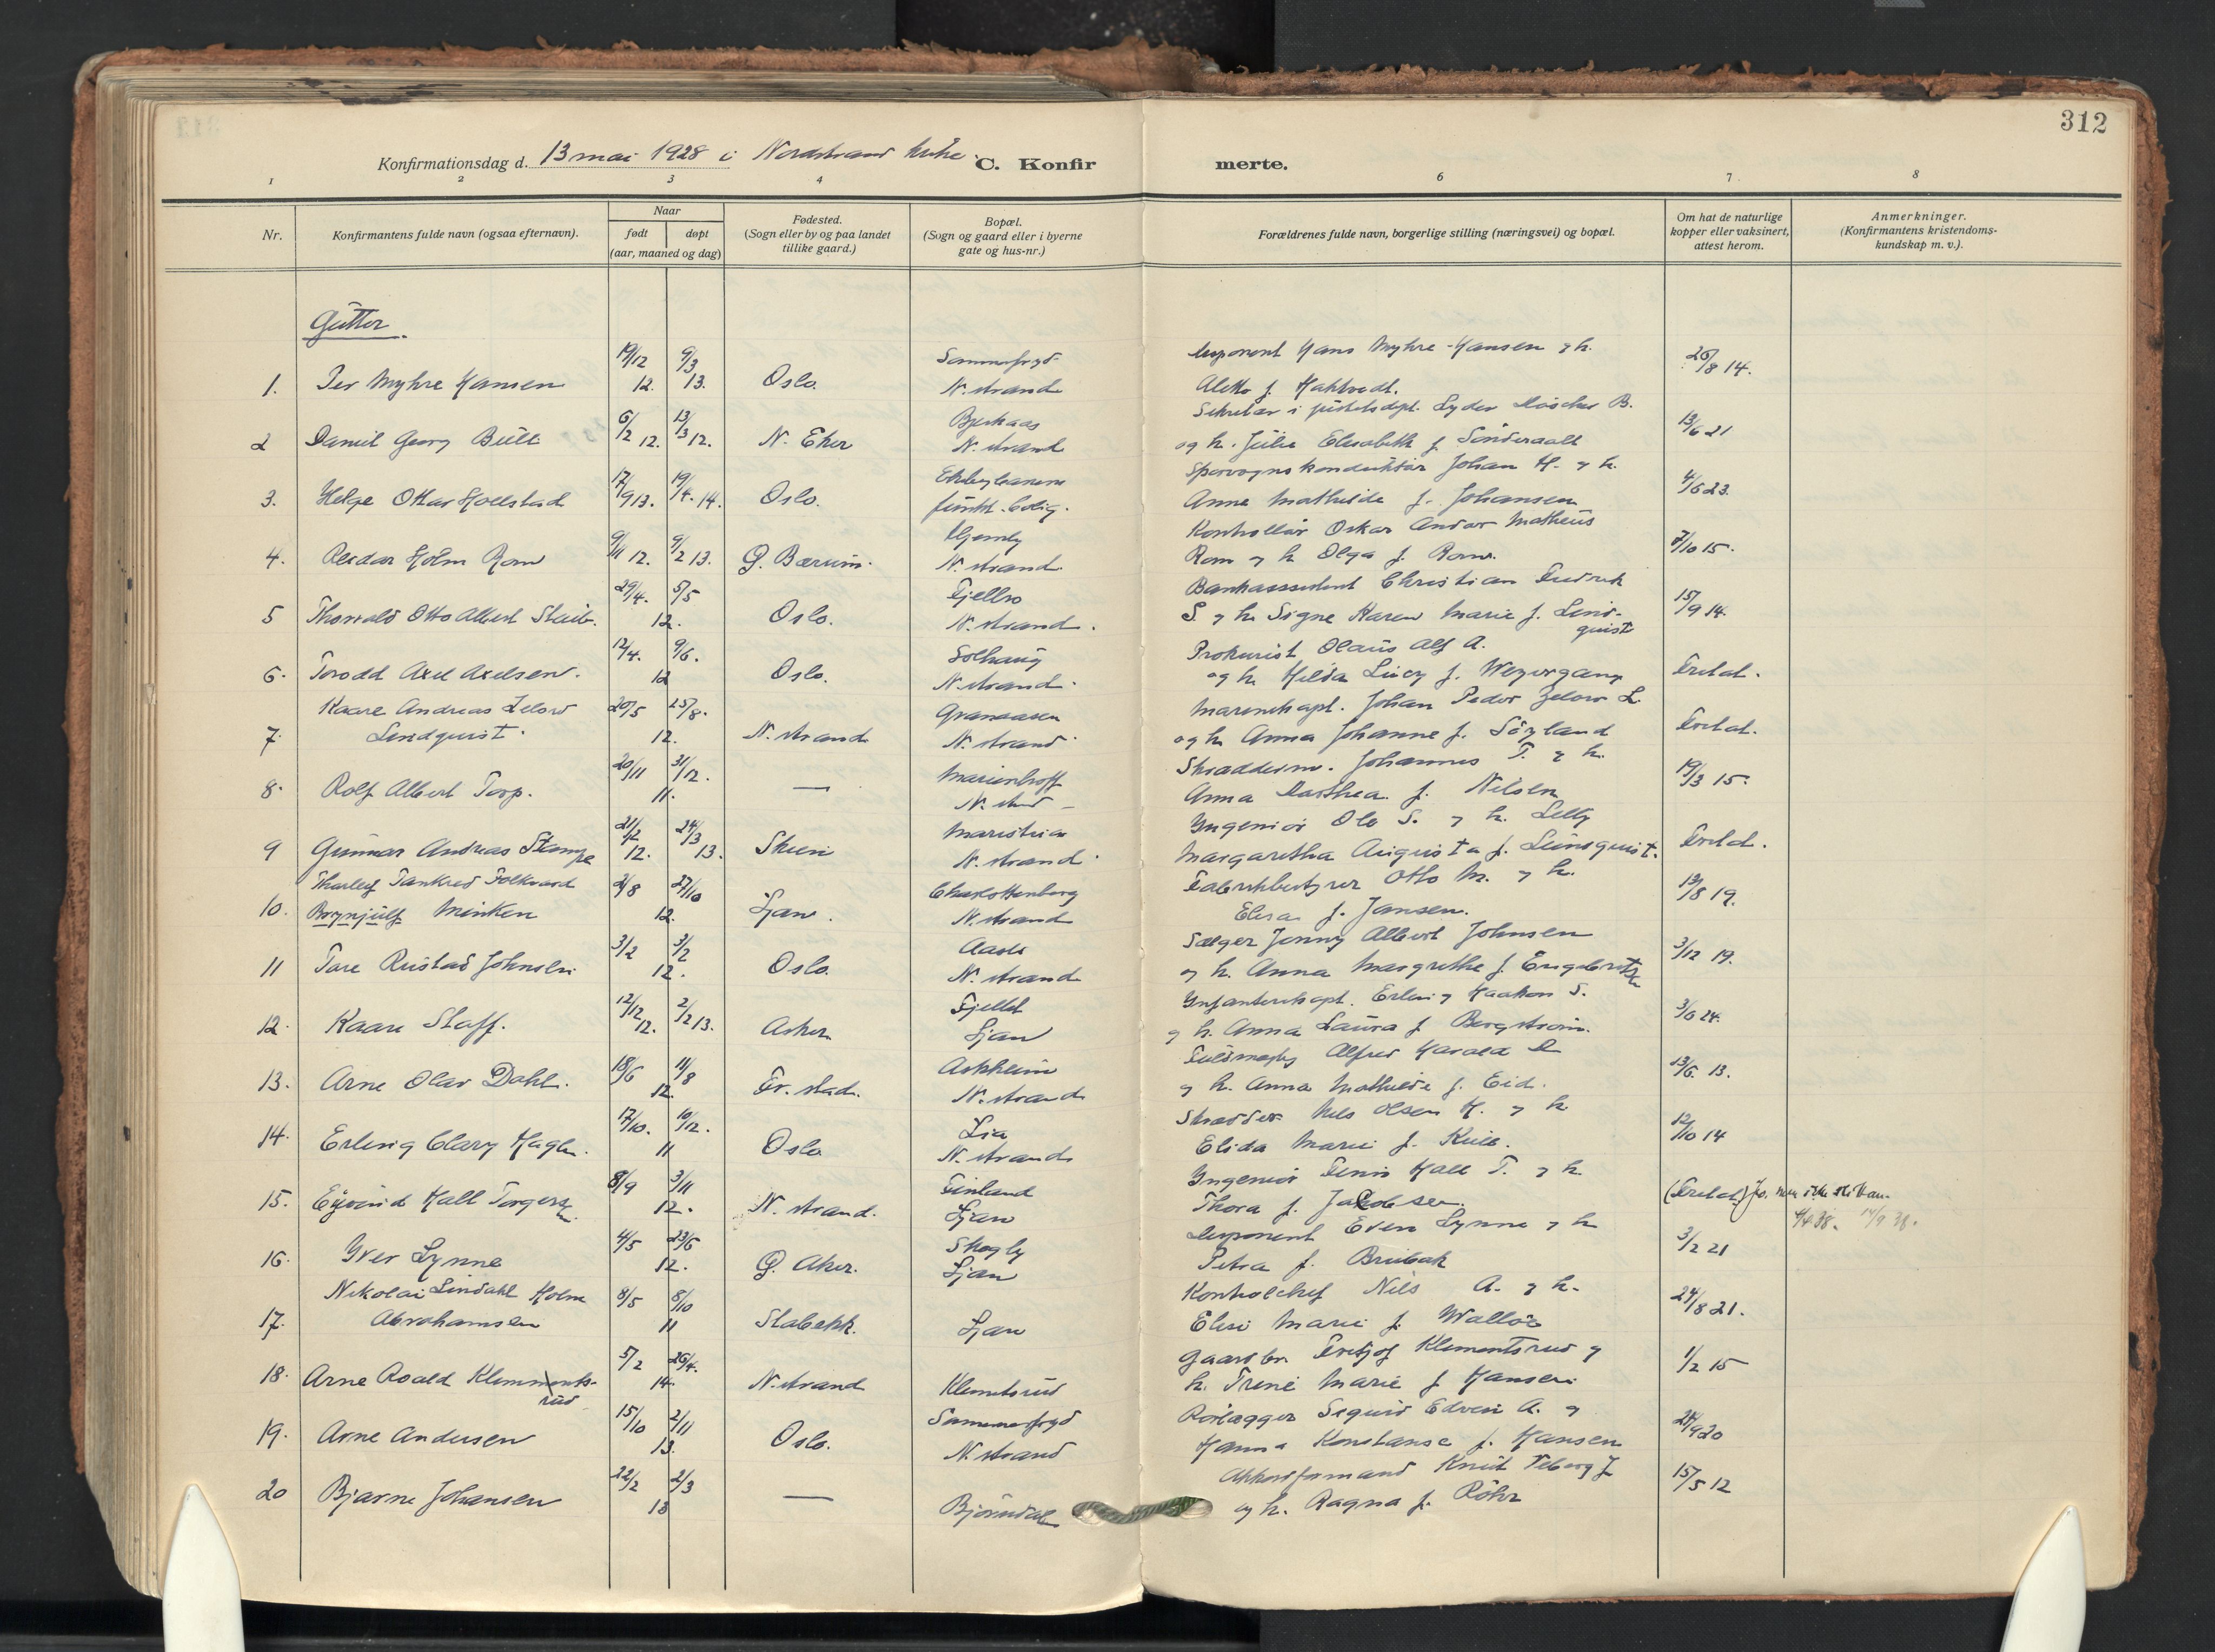 312
Konfirmationsdag d. 13 mai 1928 i Nordstrand kirke. C. Konfirmerte.
1 2 3 4 6 7 8
Nr.
Konfirmantens fulde navn (ogsaa efternavn).
Naar
født døpt
(aar, maaned og dag)
Fødested.
(Sogn eller by og paa landet
tillike gaard.)
Bopæl.
(Sogn og gaard eller i byerne
gate og hus-nr.)
Forældrenes fulde navn, borgerlige stilling (næringsvei) og bopæl.
Om hat de naturlige
kopper eller vaksinert,
attest herom.
Anmerkninger.
(Konfirmantens kristendoms-
kundskap m. v.).
Gutter.
1. Per Myhre Hansen 19/12 12. 9/3 13. Oslo. Sommerfryd N. strand
Hans Myhre-Hansen og h.
Aletto f. 26/8 14.
2 Daniel Georg Bull 6/2 12. 13/3 12. N. Eker N. strand
Sekretær i justitsdept. Lyder B.
og h. Julie Elisabeth f. 13/6 21
3. Helge Ottar Hollstad 17/9 13. 19/4. 14. Oslo. funkt. bolig.
Sporvognskonduktør Johan H. og h.
Anne Mathilde f. Johansen 4/6 23.
4. Reidar Holm Rom 9/11 12. 9/2 13. Ø. Bærum. N. strand.
Kontrollør Oskar Andor Mattheus
Rom og h Olga f. Rom. 7/10 15.
5 Thorvald Otto Albert Staib. 29/4. 5/5 12. Oslo. N. strand.
Bankassistent Christian Fredrik
S. og h. Signe Karen Marie f. Lind-
quist 15/9 14.
6. Torodd Axel Axelsen. 12/4. 9/6. 12 Oslo. Solhaug N. strand.
Prokurist Olaus Alf A.
og h. Hilda Lucy f. Weyergang Fretat.
7. Kaare Andreas Zelow
Lindquist. 20/5 25/8. 12. N. strand Granaasen N. strand.
Marinekapt. Johan Peder Zelow L.
og h. Anna Johanne f. Söyland Fretat.
8. Rolf Albert Torp. 20/11 31/12. 11. — Marienhoff N. strd —
Skræddern. Johannes T. og h.
Anna Marthea f. Nilsen 19/3 15.
9 Gunnar Andreas Stampe 21/12 12. 24/3 13. Skien N. strand.
Ingeniør Ole S. og h. Lelly
Margaretha Augusta f. Lundquist. Fretat.
10. Thorleif Tankred Folkvard
Brynjulf Minken 2/8 27/10 12. Ljan. Charlottenberg N. strand
Fabrikbestyrer Otto M. og h.
Elisa f. Jansen. 13/8 19.
11 Tore Rustad Johnsen 3/2 3/2 12. Oslo. N. strand
Sælger Jonny Albert Johnsen
og h. Anna Margrethe f. Engebretsen 3/12 19.
12. Kaare Staff. 12/12 12. 2/2 13. Asker Fjellet Ljan
Infanterikapt. Erling Haakon S.
og h. Anna Laura f. Bergström. 3/6 24.
13. Arne Olav Dahl. 18/6 11/8 12. Fr. stad. Askheim N. strand
Fuldmægtig Alfred Harald D
og h. Anna Mathilde f. Eid. 13/6. 13.
14. Erling Clary Hagh. 17/10. 10/12. 11 Oslo Lia N. strand
Skrædder Nils Olsen H. og h
Elida Marie f. 12/10 14
15. Eyvind Hall Torgersen 8/9 3/11 12. N. strand. Finland Ljan
Ingeniør Finn Hall T. og h.
Thora f. Jakobsen. (Fretat)
16. Yver Lynne 4/5 23/6 12. Ø. Aker. Skogly Ljan
Even Lynne og h
Petra f. Brubak 3/2 21
17. Nikolai Lindahl Holm
Abrahamsen 8/5 8/10 11 Stabekk. Ljan
Kontrolchef Nils A. og h.
Elise Marie f. Wallöe 24/8 21.
18. Arne Roald Klemmets-
rud 5/2 26/4. 14. N. strand Klemetsrud
Gaardbr. Fretjof Klementsrud og
h. Trine Marie f Hansen. 1/2 15
19. Arne Andersen 15/10 2/11 13. Oslo. Sommerfryd N. strand
Rørlægger Sigurd Edvin A. og
Hanna Konstanse f. Hansen 24/9 20
20 Bjarne Johansen 22/2 2/3 13 — Björndal
Akkordformand Knut J
og h. Ragna f. Röhr 15/5 12